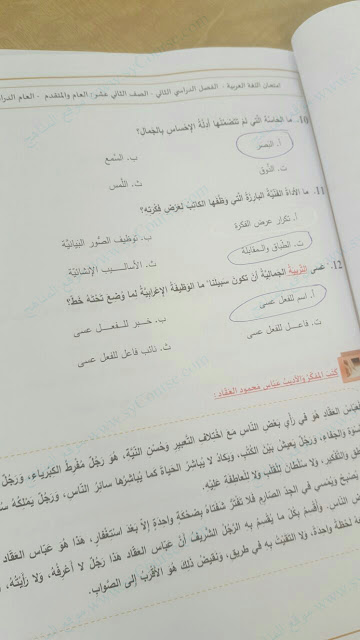 امتحان اللغة العربية - الفصل الدراسي الثاني - الصف الثاني عشر/ العام والمتقدم - العام الدرا
10. ما الحاسة التي لم تتضمنها أدلة الإحساس بالجمال؟
أ. البصر
ب. السمع
ت. الذوق
ث. اللمس
11. ما الأداة الفنية البارزة التي وظفها الكاتب لعرض فكرته؟
أ. تكرار عرض الفكرة
ب. توظيف الصور البيانية
ت. الطباق والمقابلة
ث. الأساليب الإنشائية
12. "عسى التربية الجمالية أن تكون سبيلنا" ما الوظيفة الإعرابية لما وضع تحته خط؟
أ. اسم للفعل عسى
ب. خبر للفعل عسى
ت. فاعل للفعل عسى
ث. نائب فاعل للفعل عسى
كتب المفكر والأديب عباس محمود العقاد:
العقاد هو في رأي بعض الناس مع اختلاف التعبير وحسن النية، هو رجل مفرط الكبرياء، ورجل
والجفاء، ورجل يعيش بين الكتب، ويكاد لا يباشر الحياة كما يباشرها سائر الناس، ورجل يملكه
والتفكير، ولا سلطان للقلب ولا للعاطفة عليه.
يصبح ويمسي في الجد الصارم فلا تفتر شفتاه بضحكة واحدة إلا بعد استغفار، هذا هو عباس العقاد
الناس. وأقسم بكل ما يقسم به الرجل الشريف أن عباس العقاد هذا رجل لا أعرفه، ولا رأيته،
لحظة واحدة، ولا التقيت به في طريق، ونقيض ذلك هو الأقرب إلى الصواب.